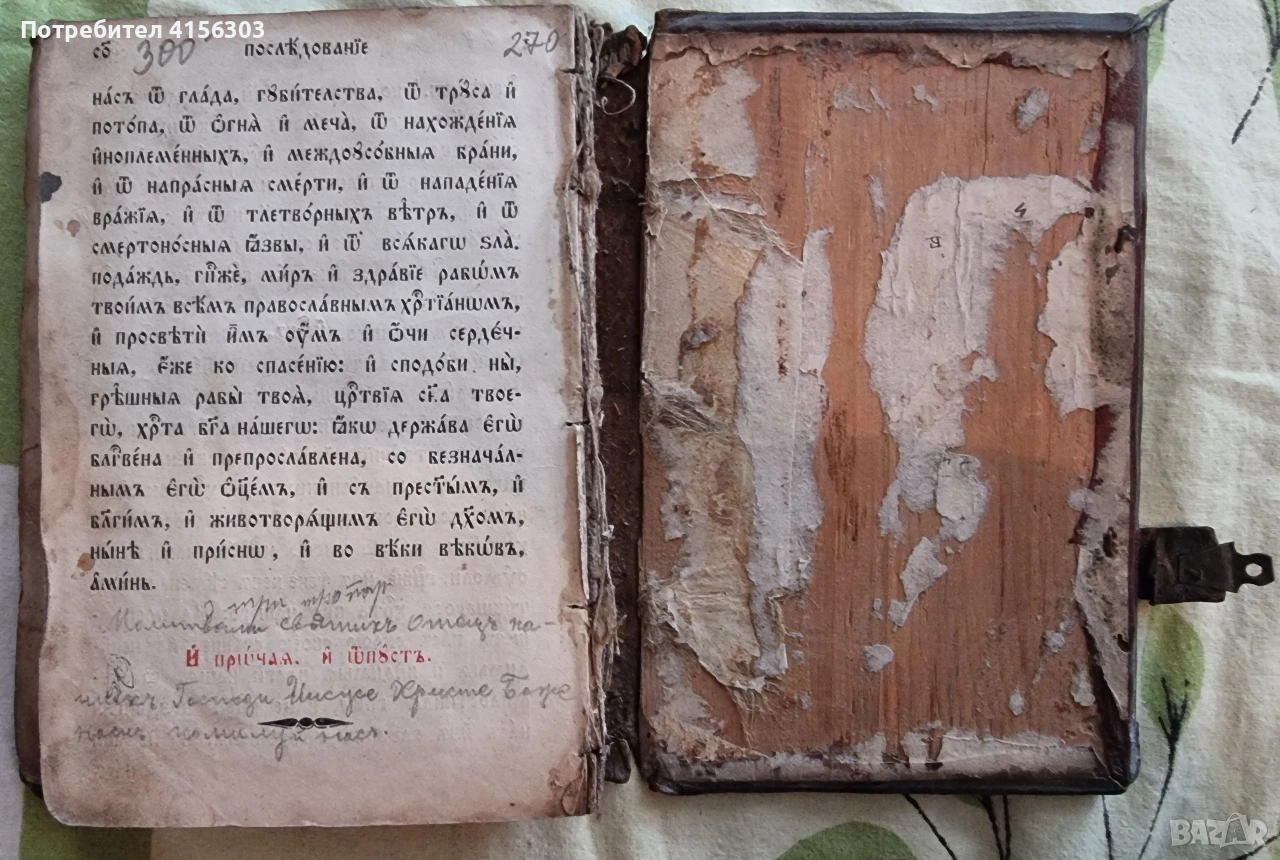 Потребител 4156303
со҃ 300 послѣ́дованїе 270
на́съ ѿ гла́да, гꙋби́тельства, ѿ трꙋ́са и҆
пото́па, ѿ ѻ҆гнѧ̀ и҆ меча̀, ѿ нахожде́нїѧ
и҆ноплеме́нныхъ, и҆ междоꙋсо́бныѧ бра́ни,
и҆ ѿ напра́сныѧ сме́рти, и҆ ѿ нападе́нїѧ
вра́жїѧ, и҆ ѿ тлетво́рныхъ вѣ̑тръ, и҆ ѿ
смертоно́сныѧ ꙗ҆́звы, и҆ ѿ всѧ́кагѡ ѕла̀.
пода́ждь, гп҃жѐ, ми́ръ и҆ здра́вїе рабѡ́мъ
твои̑мъ всѣ̑мъ правосла́внымъ хрⷭ҇тїа́нѡмъ,
и҆ просвѣтѝ и҆̀мъ ᲂу҆́мъ и҆ ѻ҆́чи серде́ч-
ныѧ, є҆́же ко спасе́нїю: и҆ сподо́би ны̀,
грѣ́шныѧ рабы̀ твоѧ̑, црⷭ҇твїѧ сн҃а твое-
гѡ̀, хрⷭ҇та̀ бг҃а на́шегѡ: ꙗ҆́кѡ держа́ва є҆гѡ̀
блгⷭ҇ве́на и҆ препросла́влена, со безнача́л-
нымъ є҆гѡ̀ ѻ҆ц҃е́мъ, и҆ съ прест҃ы́мъ, и҆
бл҃ги́мъ, и҆ животворѧ́щимъ є҆гѡ̀ дх҃омъ,
ны́нѣ и҆ при́снѡ, и҆ во вѣ́ки вѣкѡ́въ,
а҆ми́нь.
три тропар
Молитвами святихъ Отецъ на-
И҆ прѡ́чаѧ. и҆ ѿпꙋ́стъ.
шихъ Господи Иисусе Христе Боже
нашъ помилуй насъ.
BAZAR